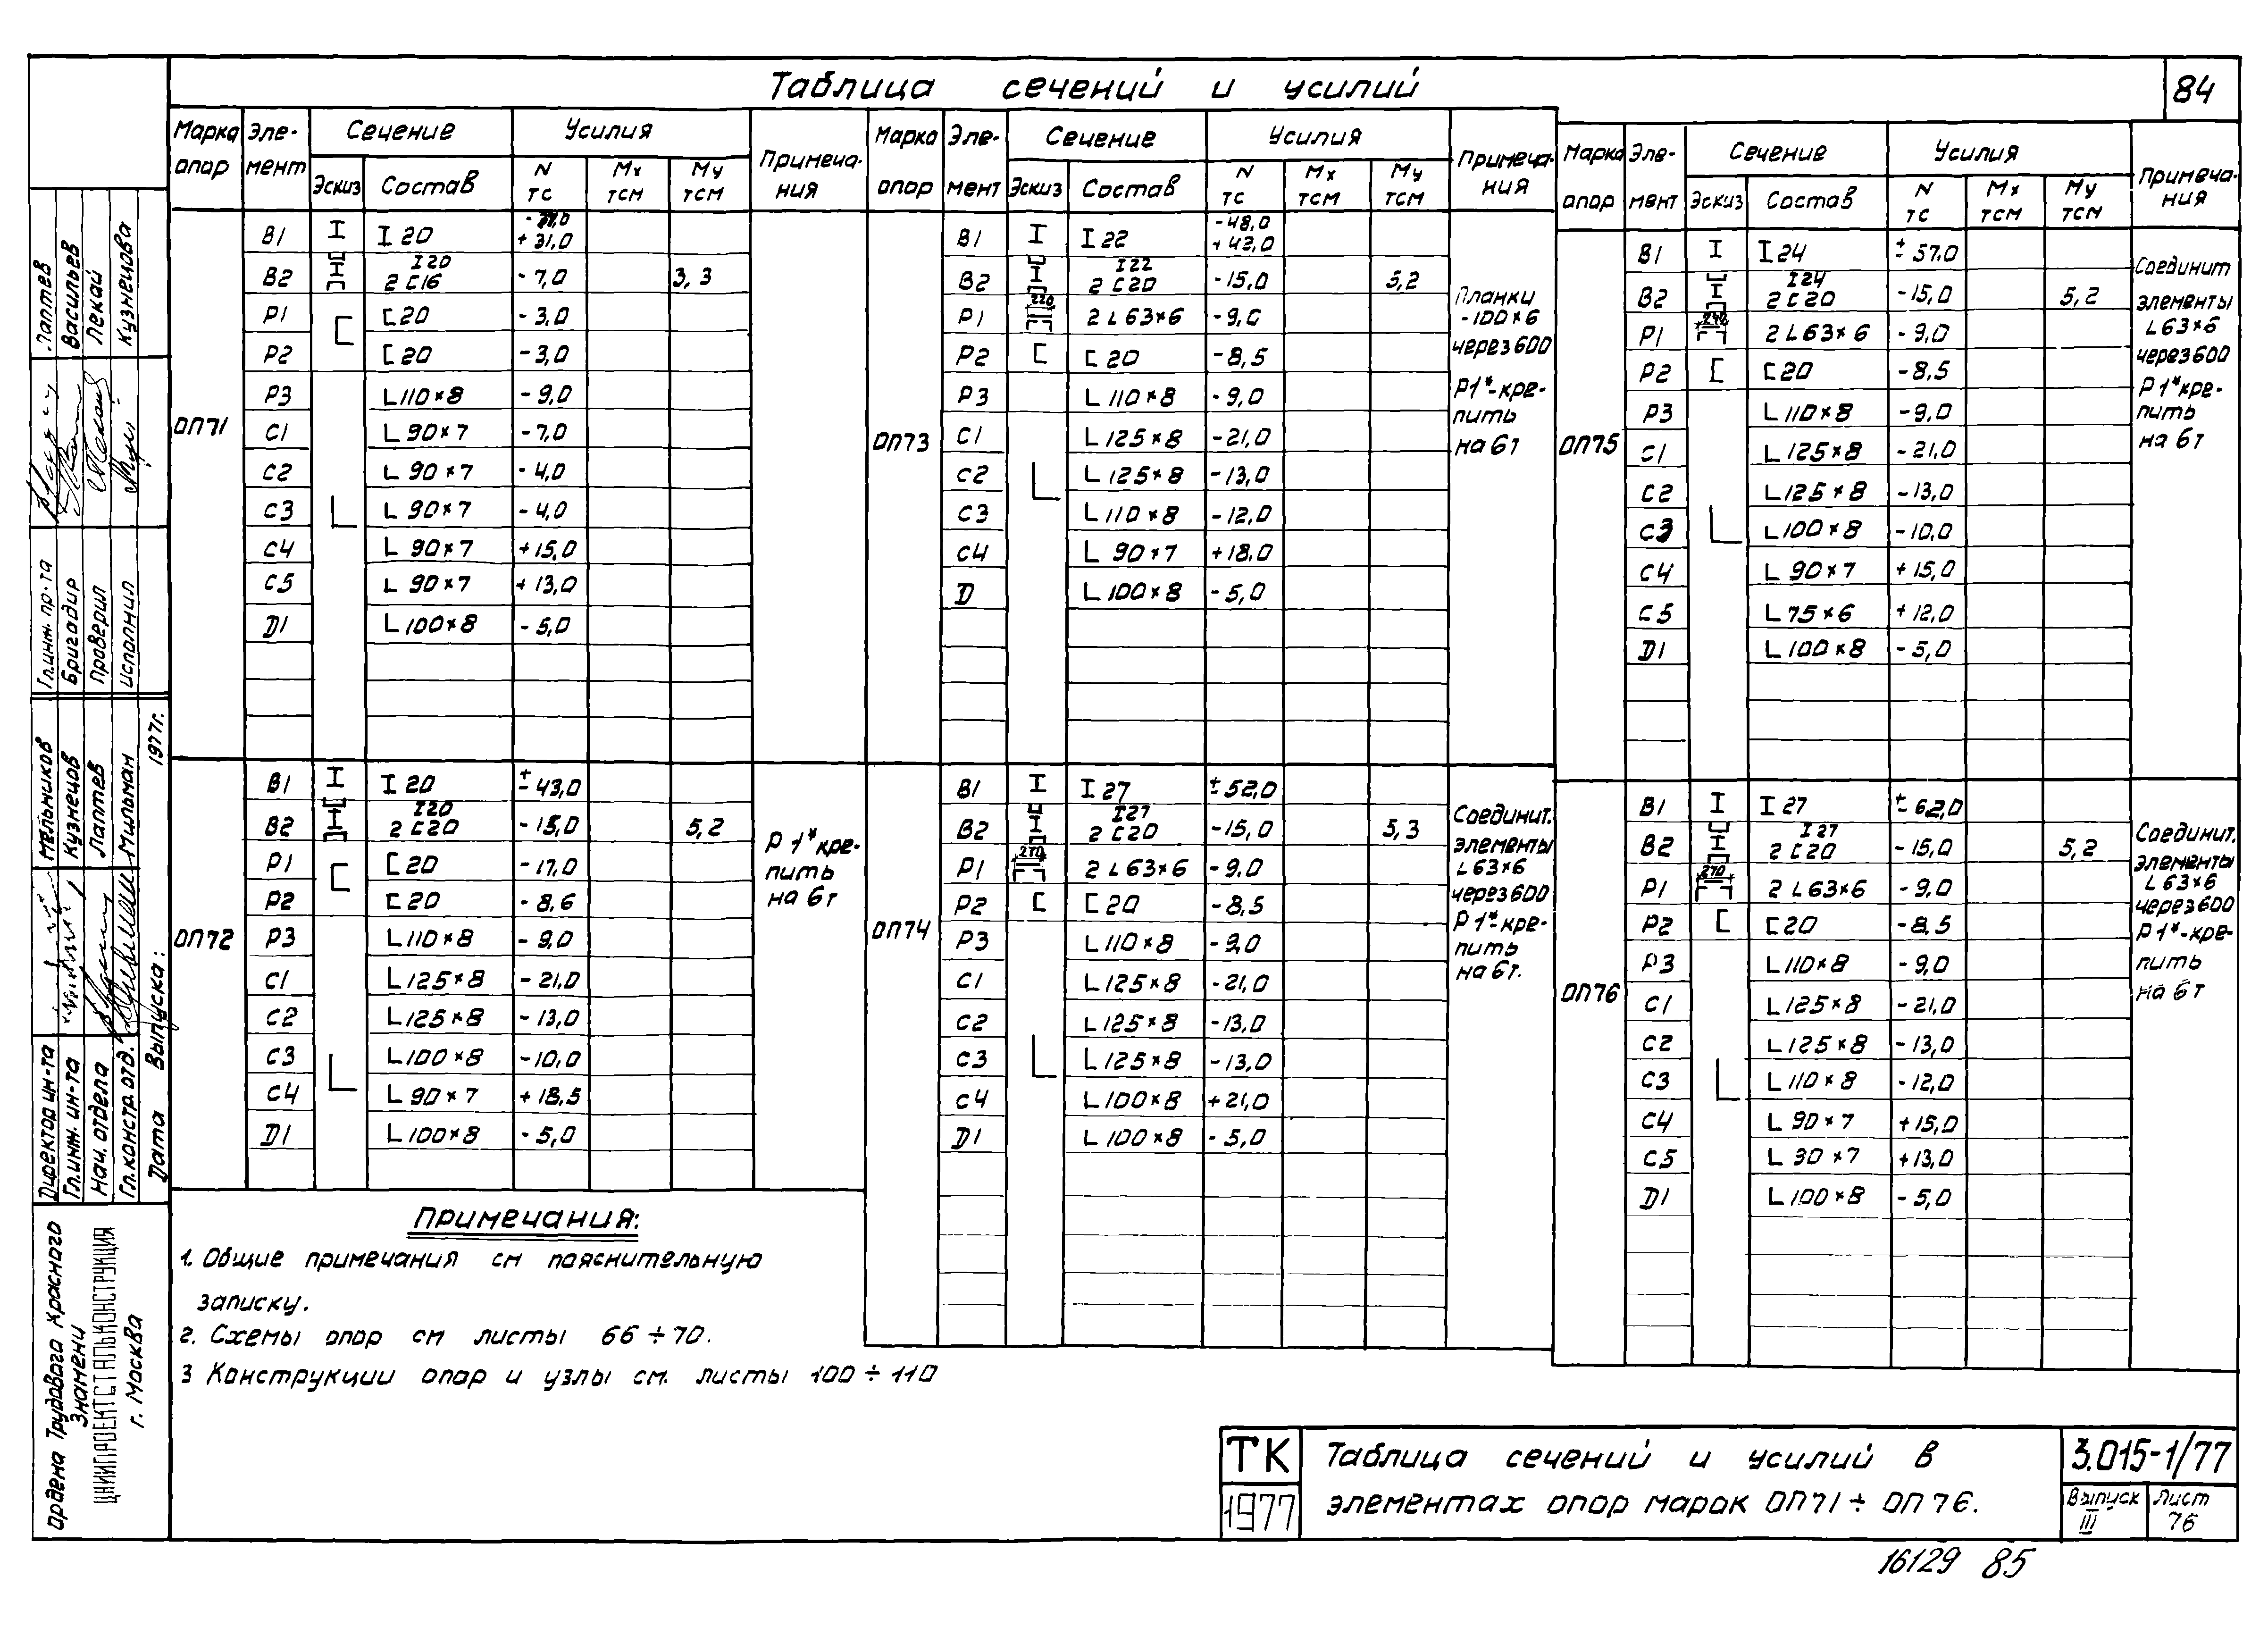 Таблица сечений и усилий
84
Марка опор | Эле-мент | Сечение | Усилия | Примеча-ния
Эскиз | Состав | N тс | Mx тсм | My тсм
ОП71
В1 | I 20 | +31,0
В2 | I20 2 [16 | -7,0 | 3,3
Р1 | [20 | -3,0
Р2 | [20 | -3,0
Р3 | L110×8 | -9,0
С1 | L 90×7 | -7,0
С2 | L 90×7 | -4,0
С3 | L 90×7 | -4,0
С4 | L 90×7 | +15,0
С5 | L 90×7 | +13,0
D1 | L100×8 | -5,0
ОП72
В1 | I 20 | ± 43,0
В2 | I20 2 [20 | -15,0 | 5,2
Р1 | [20 | -17,0
Р2 | [20 | -8,6
Р3 | L110×8 | -9,0
С1 | L125×8 | -21,0
С2 | L125×8 | -13,0
С3 | L100×8 | -10,0
С4 | L 90×7 | +18,5
D1 | L100×8 | -5,0
Р1* кре-
пить
на 6т
Марка опор | Эле-мент | Сечение | Усилия | Примеча-ния
Эскиз | Состав | N тс | Mx тсм | My тсм
ОП73
В1 | I 22 | -48,0 +42,0
В2 | I22 2 [20 | -15,0 | 5,2
Р1 | 220 | 2 L63×6 | -9,0
Р2 | [20 | -8,5
Р3 | L110×8 | -9,0
С1 | L125×8 | -21,0
С2 | L125×8 | -13,0
С3 | L110×8 | -12,0
С4 | L 90×7 | +18,0
D | L100×8 | -5,0
Планки
-100×6
через 600
Р1*-кре-
пить
на 6т
ОП74
В1 | I 27 | ± 52,0
В2 | I27 2 [20 | -15,0 | 5,3
Р1 | 270 | 2 L63×6 | -9,0
Р2 | [20 | -8,5
Р3 | L110×8 | -9,0
С1 | L125×8 | -21,0
С2 | L125×8 | -13,0
С3 | L125×8 | -13,0
С4 | L100×8 | +21,0
D1 | L100×8 | -5,0
Соединит.
элементы
L63×6
через 600
Р1*-кре-
пить
на 6т.
Марка опор | Эле-мент | Сечение | Усилия | Примеча-ния
Эскиз | Состав | N тс | Mx тсм | My тсм
ОП75
В1 | I 24 | ± 57,0
В2 | I24 2 [20 | -15,0 | 5,2
Р1 | 240 | 2 L63×6 | -9,0
Р2 | [20 | -8,5
Р3 | L110×8 | -9,0
С1 | L125×8 | -21,0
С2 | L125×8 | -13,0
С3 | L100×8 | -10,0
С4 | L 90×7 | +15,0
С5 | L75×6 | +12,0
D1 | L100×8 | -5,0
Соединит
элементы
L63×6
через 600
Р1* кре-
пить
на 6т
ОП76
В1 | I 27 | ± 62,0
В2 | I27 2 [20 | -15,0 | 5,2
Р1 | 2 L63×6 | -9,0
Р2 | [20 | -8,5
Р3 | L110×8 | -9,0
С1 | L125×8 | -21,0
С2 | L125×8 | -13,0
С3 | L110×8 | -12,0
С4 | L 90×7 | +15,0
С5 | L 90×7 | +13,0
D1 | L100×8 | -5,0
Соединит.
элементы
L63×6
через 600
Р1*-кре-
пить
на 6т
Примечания:
1. Общие примечания см пояснительную
записку.
2. Схемы опор см листы 66÷70.
3 Конструкции опор и узлы см. листы 100÷110
ТК
1977
Таблица сечений и усилий в
элементах опор марок ОП71÷ОП76.
3.015-1/77
Выпуск III
Лист 76
16129 85
Гл.инж. пр-та Лаптев
Бригадир Васильев
Проверил Лекай
Исполнил Кузнецова
Директор ин-та Мельников
Гл.инж. ин-та Кузнецов
Нач. отдела Лаптев
Гл.констр.отд. Мильман
Дата выпуска: 1977г.
Ордена Трудового Красного
Знамени
ЦНИИПРОЕКТСТАЛЬКОНСТРУКЦИЯ
г. Москва